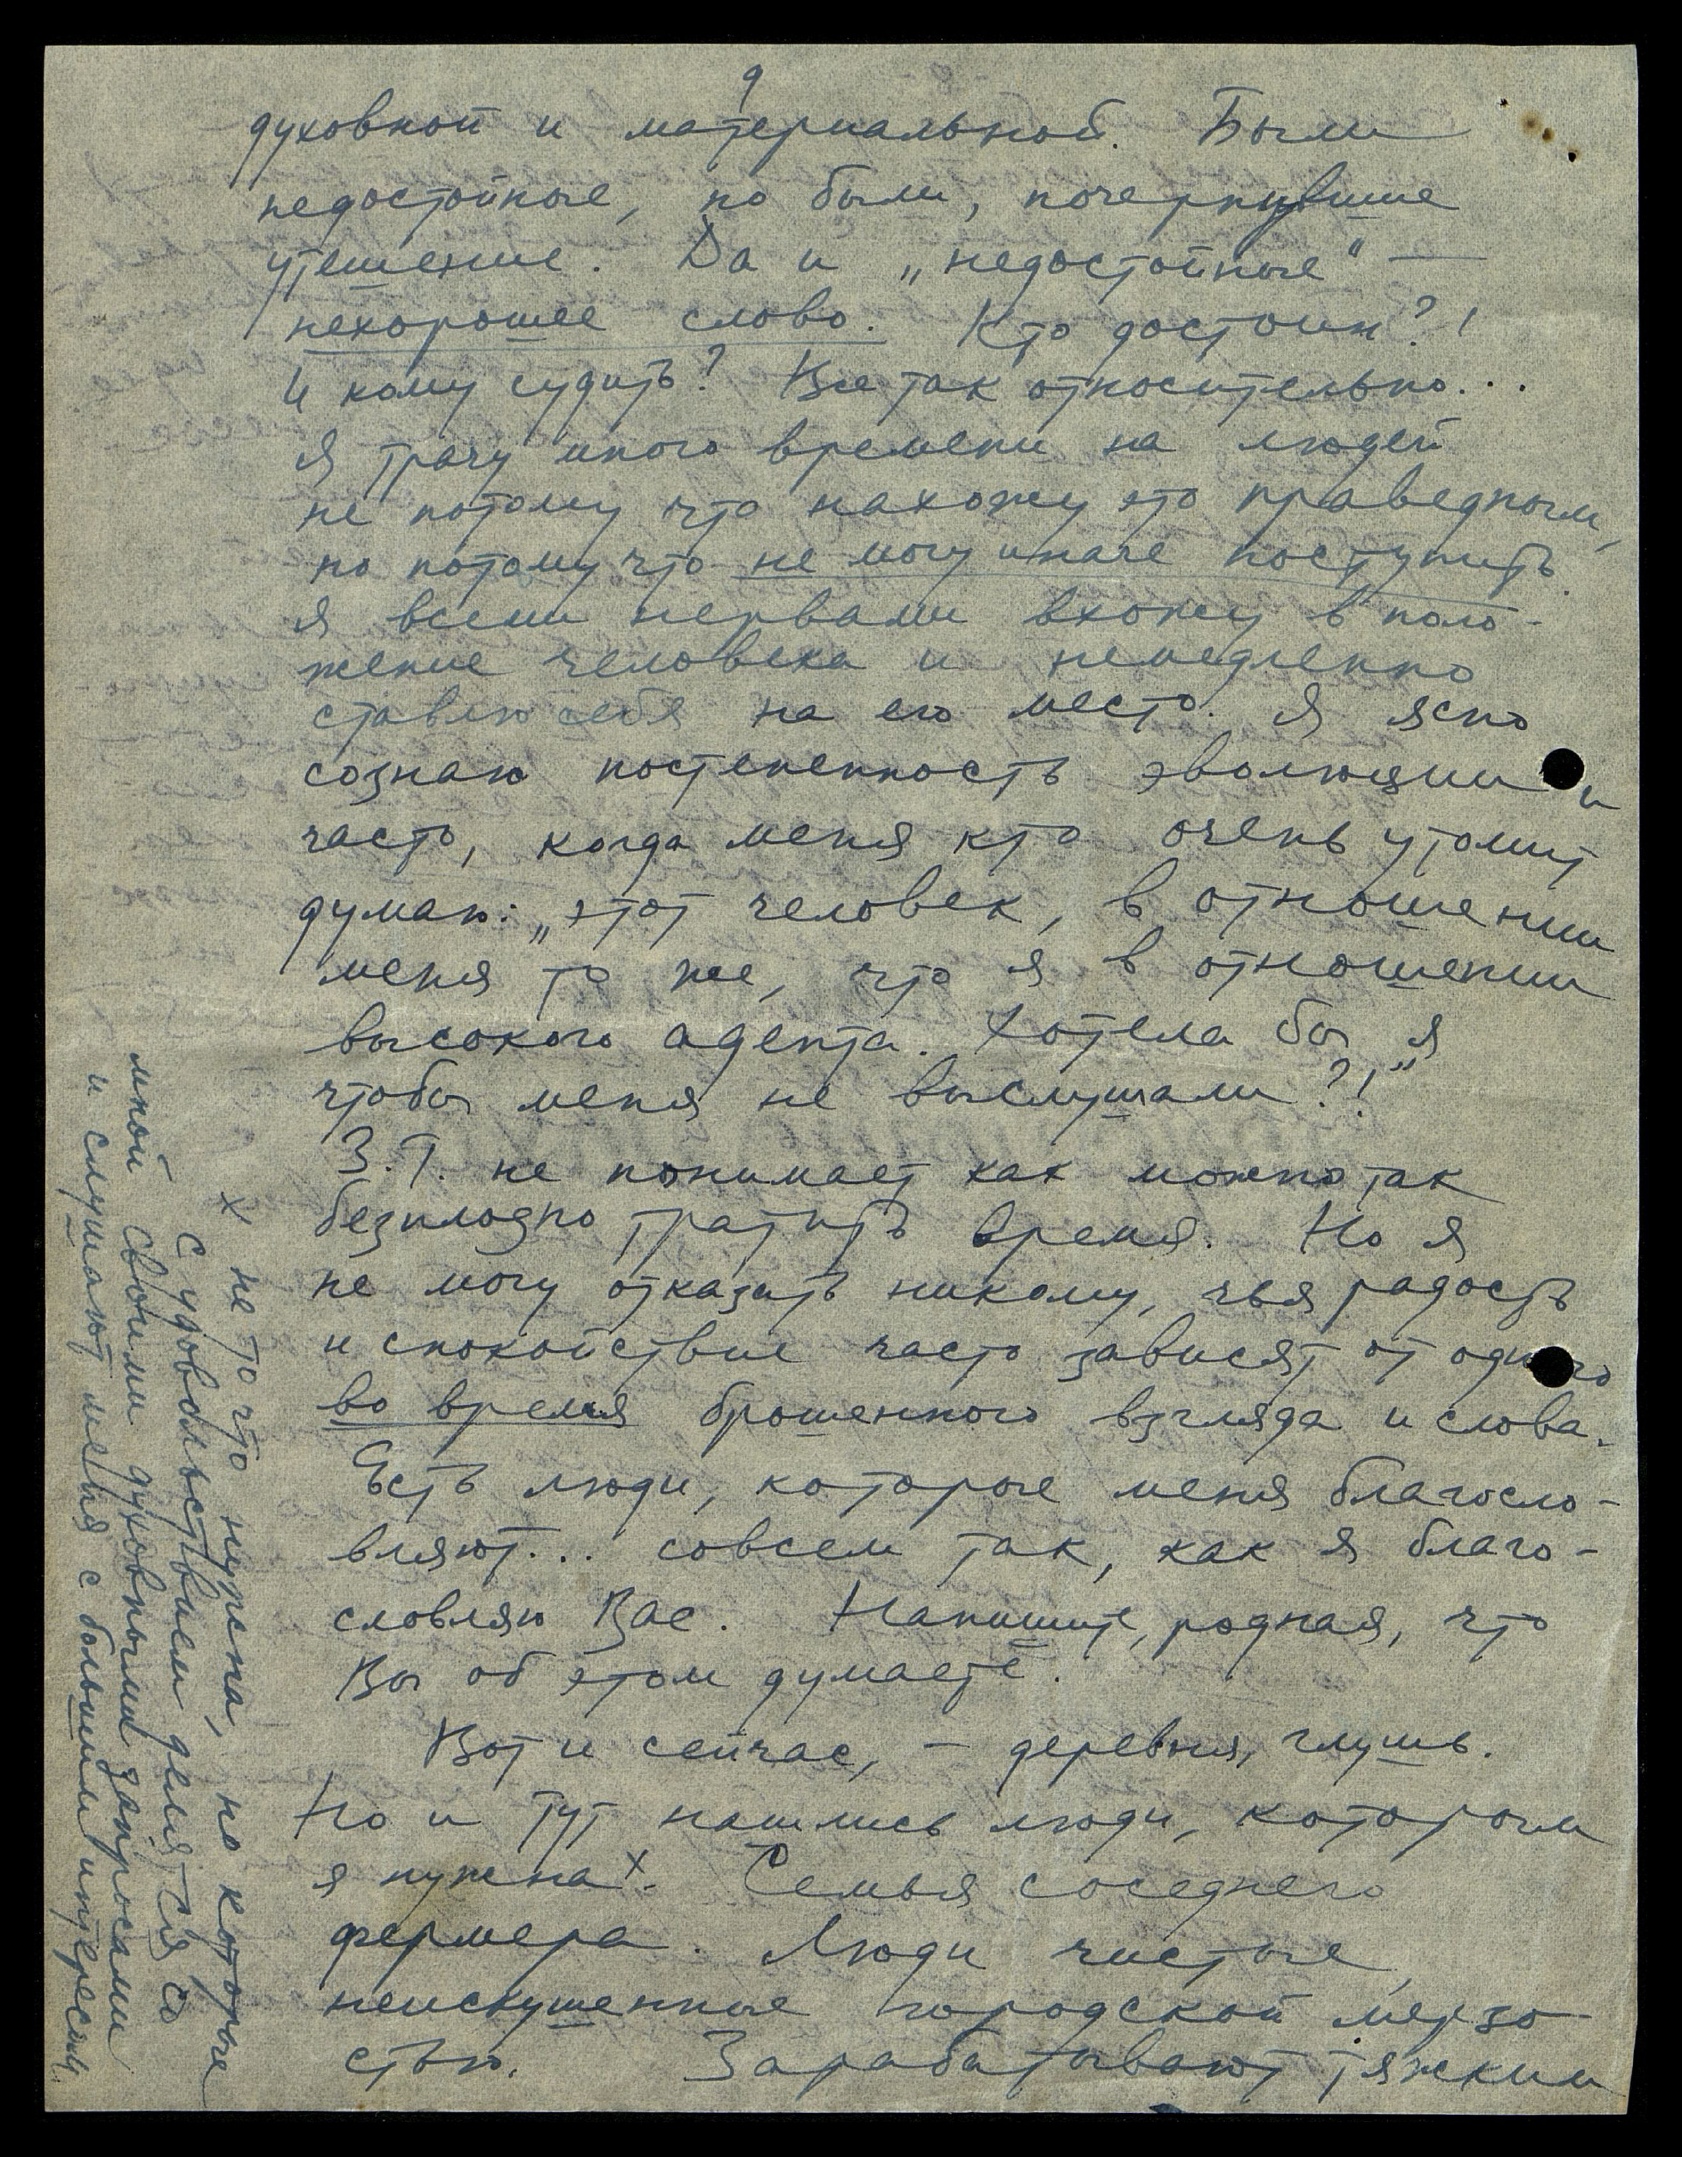 9
духовной и материальной. Были
недостойные, но были, почерпнувшие
утешение. Да и „недостойные" —
нехорошее слово. Кто достоин?!
И кому судить? Все так относительно...
Я трачу много времени на людей
не потому что нахожу это праведным,
но потому что не могу иначе поступить.
Я всеми нервами вхожу в поло-
жение человека и немедленно
ставлю себя на его место. Я ясно
сознаю постепенность эволюции и
часто, когда меня кто очень утомит
думаю: „этот человек, в отношении
меня то же, что я в отношении
высокого адепта. Хотела бы я
чтобы меня не выслушали?!"
З.Г. не понимает как можно так
безплодно тратить время. Но я
не могу отказать никому, чья радость
и спокойствие часто зависят от одного
во время брошенного взгляда и слова.
Есть люди, которые меня благосло-
вляют... совсем так, как я благо-
словляю Вас. Напишите, родная, что
Вы об этом думаете.
Вот и сейчас, — деревня, глушь.
Но и тут нашлись люди, которым
я нужна x. Семья соседнего
фермера. Люди чистые,
неискушенные городской мерзо-
стью. Зарабатывают тяжким
x не то что нужна, но которые
с удовольствием делятся со
мной своими духовными запросами
и слушают меня с большим интересом.